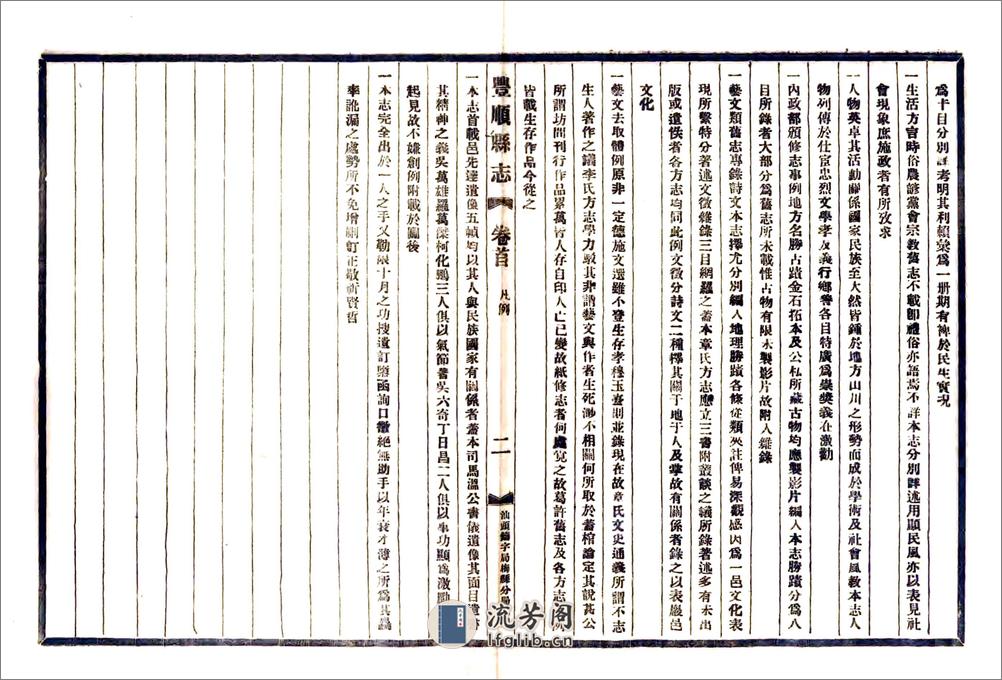 爲十目分別詳考明其利賴彙爲一册期有裨於民生實況
一生活方言時俗農諺黨會宗教舊志不載卽禮俗亦語焉不詳本志分別詳述用顯民風亦以表見社
會現象庶施政者有所攷求
一人物英卓其活動關係國家民族至大然皆鍾於地方山川之形勢而成於學術及社會風教本志人
物列傳於仕宦忠烈文學孝友義行鄉善各目特廣爲彙奬義在激勸
一內政部頒修志事例地方名勝古蹟金石拓本及公私所藏古物均應製影片編入本志勝蹟分爲八
目所錄者大部分爲舊志所未載惟古物有限未製影片故附入雜錄
一藝文類舊志專錄詩文本志擇尤分別編入地理勝蹟各條從類夾註俾易深觀感因爲一邑文化表
現所繫特分著述文徵雜錄三目網羅之蓋本章氏方志應立三書附叢談之議所錄著述多有未出
版或遺佚者各方志均同此例文徵分詩文二種擇其關于地于人及掌故有關係者錄之以表嚴邑
文化
一藝文去取體例原非一定德施文選雖不登生存孝穆玉臺則並錄現在故章氏文史通義所謂不志
生人著作之議李氏方志學力駁其非謂藝文與作者生死渺不相關何所取於蓋棺論定其說甚公
所謂坊間刊行作品累萬皆人存自印人亡已變故紙修志者何處覓之故葛許舊志及各方志
皆載生存作品今從之
豐順縣志 卷首 凡例 二 汕頭鑄字局梅縣分局
一本志首載邑先達遺像五幀均以其人與民族國家有關係者蓋本司馬溫公書儀遺像其面目遺
其精神之義吳萬雄羅萬傑柯化鵬三人俱以氣節著吳六奇丁日昌二人俱以事功顯爲激勵
起見故不嫌創例附載於圖後
一本志完全出於一人之手又勒限十月之功搜遺訂墜函詢口徵絕無助手以年衰才薄之所爲其爲
率訛漏之處勢所不免增刪訂正敬祈賢哲
流芳阁
lfglib.cn